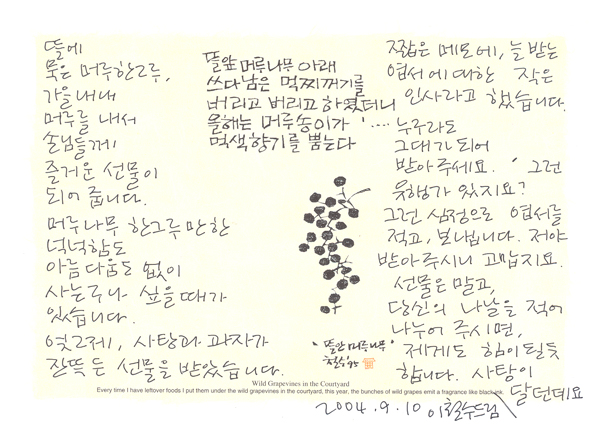 뜰에
묵은 머루한그루,
가을내내
머루를 내서
손님들께
즐거운 선물이
되어 줍니다.
머루나무 한그루만한
넉넉함도
아름다움도 없이
사는구나 싶을때가
있습니다.
엊그제, 사탕과 과자가
잔뜩 든 선물을 받았습니다.
뜰앞 머루나무 아래
쓰다남은 먹찌꺼기를
버리고 버리고 하였더니
올해는 머루송이가 ····
먹색향기를 뿜는다
"뜰앞 머루나무"
철수 '95
Wild Grapevines in the Courtyard
Every time I have leftover foods I put them under the wild grapevines in the courtyard, this year, the bunches of wild grapes emit a fragrance like black ink.
짧은 메모에, 늘 받는
엽서에 대한 작은
인사라고 했습니다.
누구라도
그대가 되어
받아주세요. 그런
유행가 있지요?
그런 심정으로 엽서를
적고, 보냅니다. 저야
받아주시니 고맙지요.
선물은 말고,
당신의 나날을 적어
나누어 주시면,
제게도 힘이될듯
합니다. 사탕이
달던데요
2004.9.10 이철수드림